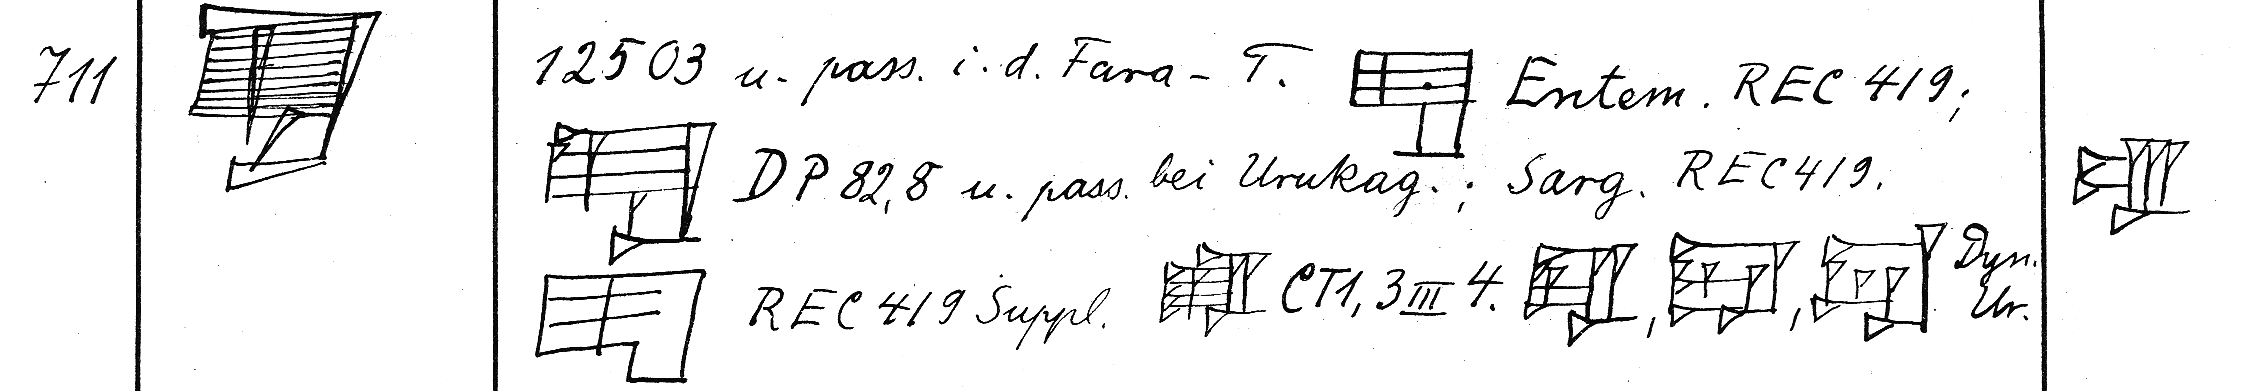 711 12503 u. pass. i. d. Fara-T. Entem. REC 419;
DP 82,8 u. pass. bei Urukag.; Sarg. REC 419.
REC 419 Suppl. CT1, 3 III 4. , , Dyn. Ur.